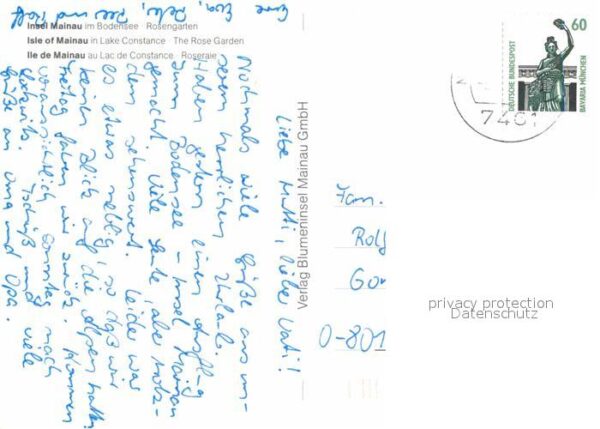 Insel Mainau im Bodensee Rosengarten
Isle of Mainau in Lake Constance The Rose Garden
Ile de Mainau au Lac de Constance Roseraie
Liebe Mutti, lieber Vati!
Nochmals viele Grüße aus un-
serem herrlichen Urlaub.
Haben gestern einen Ausflug
zum Bodensee – Insel Mainau
gemacht. Viele Leute, aber trotz-
dem sehenswert. Leider war
es etwas neblig, so daß wir
keinen Blick auf die Alpen hatten.
Freitag fahren wir zurück. Kommen
voraussichtlich Sonntag nach
Tschüß und viele
Grüße an Oma und Opa.
Eure
und Rolf
Verlag Blumeninsel Mainau GmbH
60
DEUTSCHE BUNDESPOST
BAVARIA MÜNCHEN
7401
Fam.
Rolf
O-801
privacy protection
Datenschutz